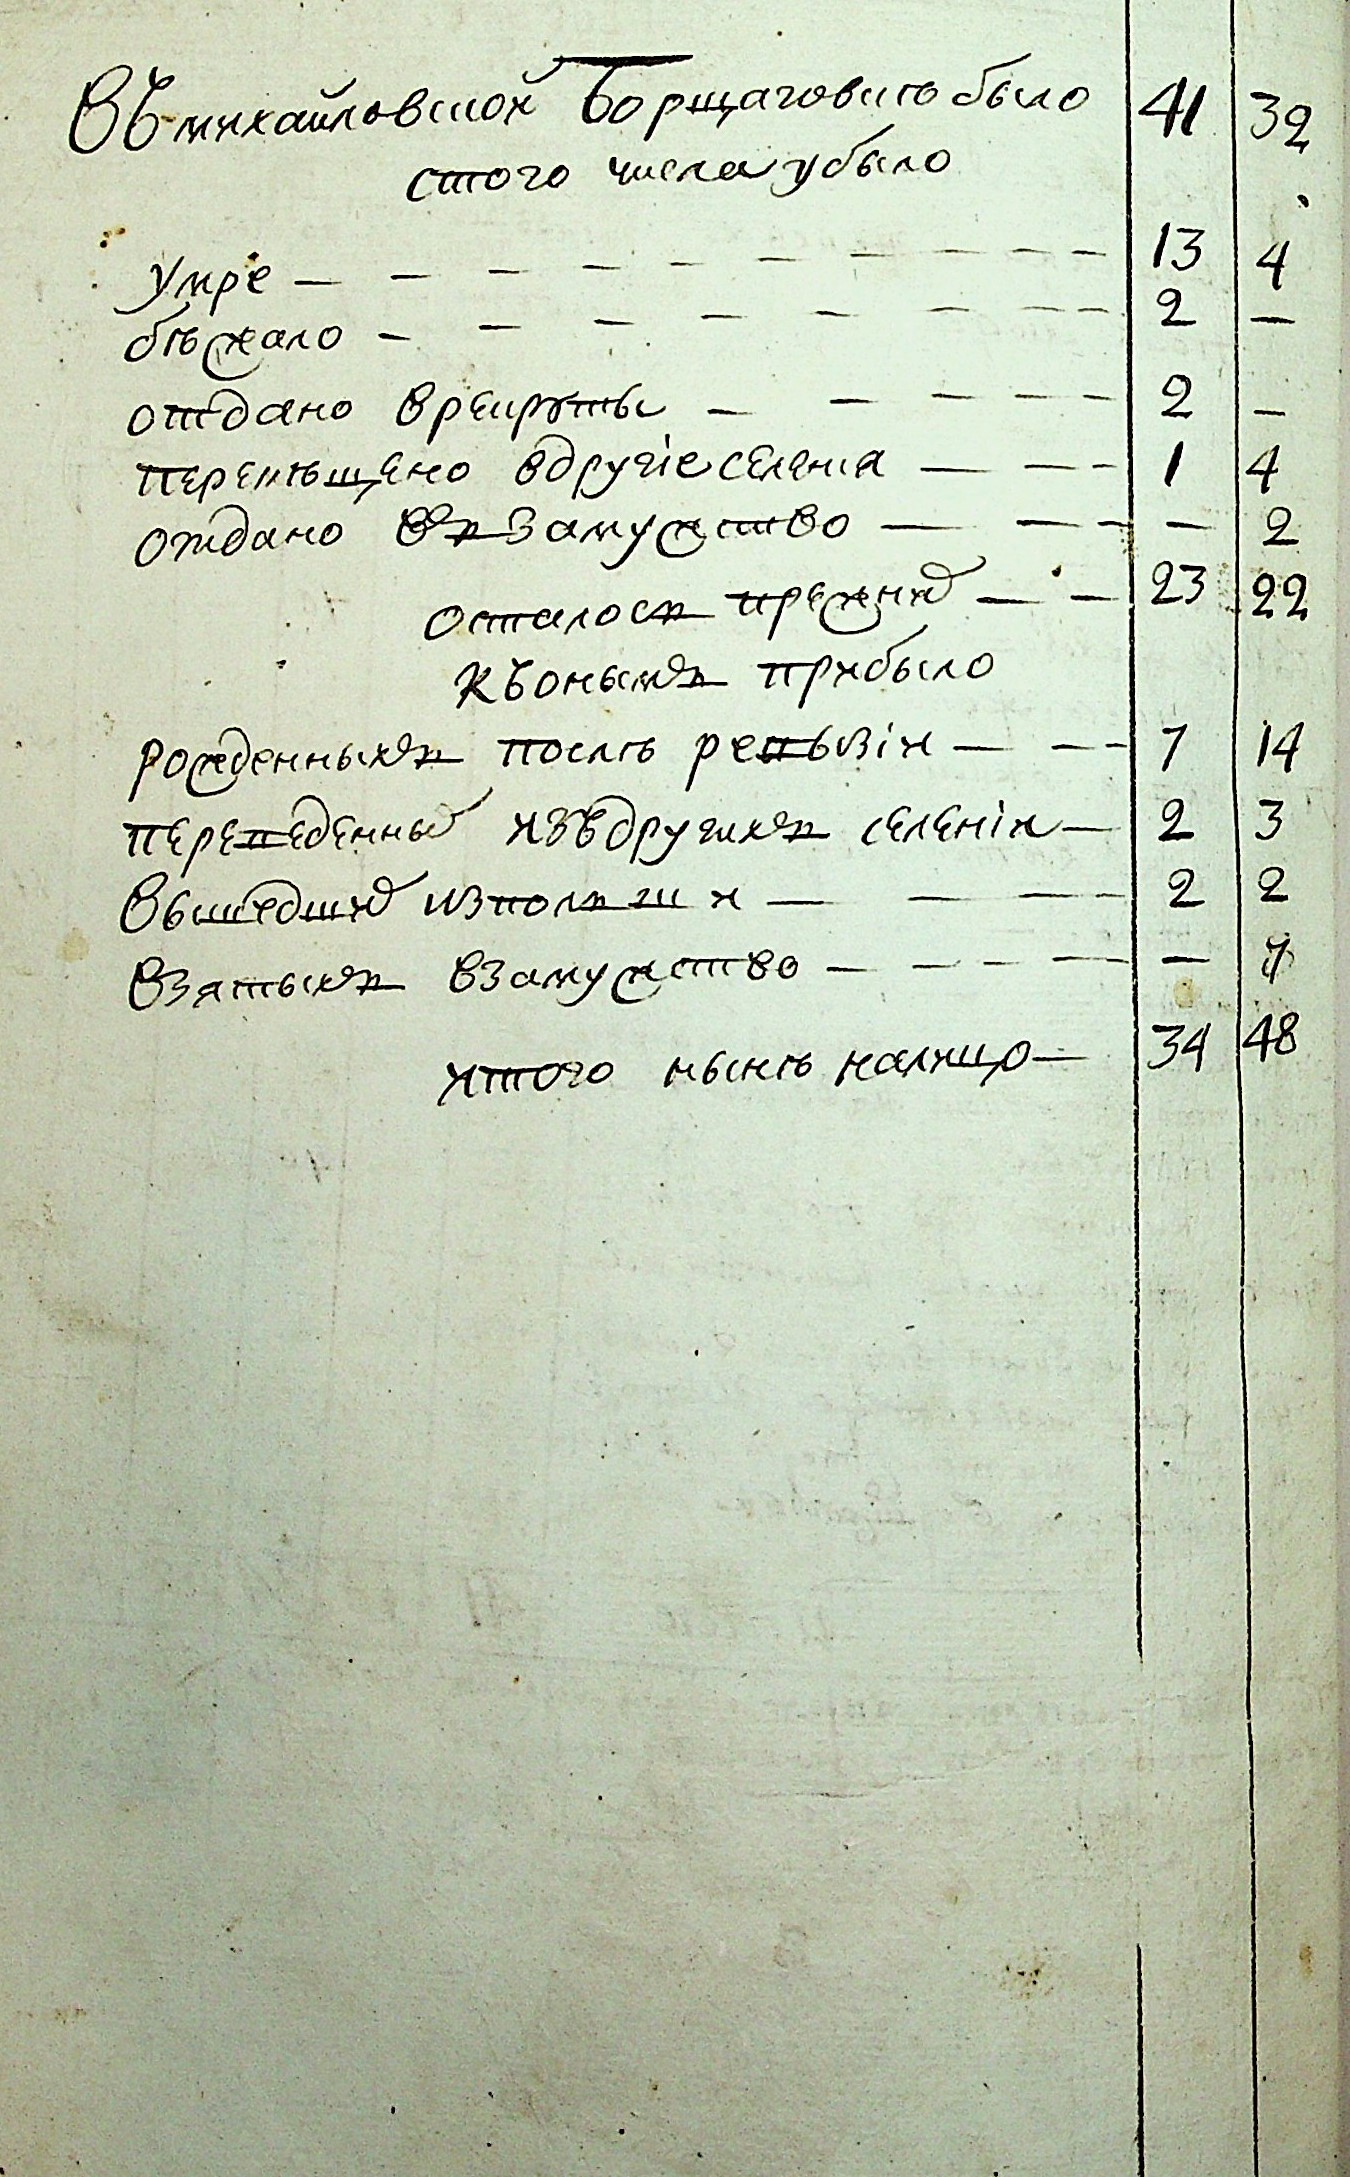 Въ михайловской Борщаговкѣ было 41 32
стого числа убыло
умре — — — — — — — — — 13 4
бѣжало — — — — — — — — 2 —
отдано врекруты — — — — — 2 —
перемѣщено вдругіе селенія — — — 1 4
отдано въ замужство — — — — 2
осталось прежних — — 23 22
Къ онымъ прибыло
рожденныхъ послѣ ревизіи — — — 7 14
переведенных изъ другихъ селеніи — 2 3
вышедших изполши — — — — 2 2
взятыхъ взамужство — — — — — — 7
итого нынѣ налицо — 34 48